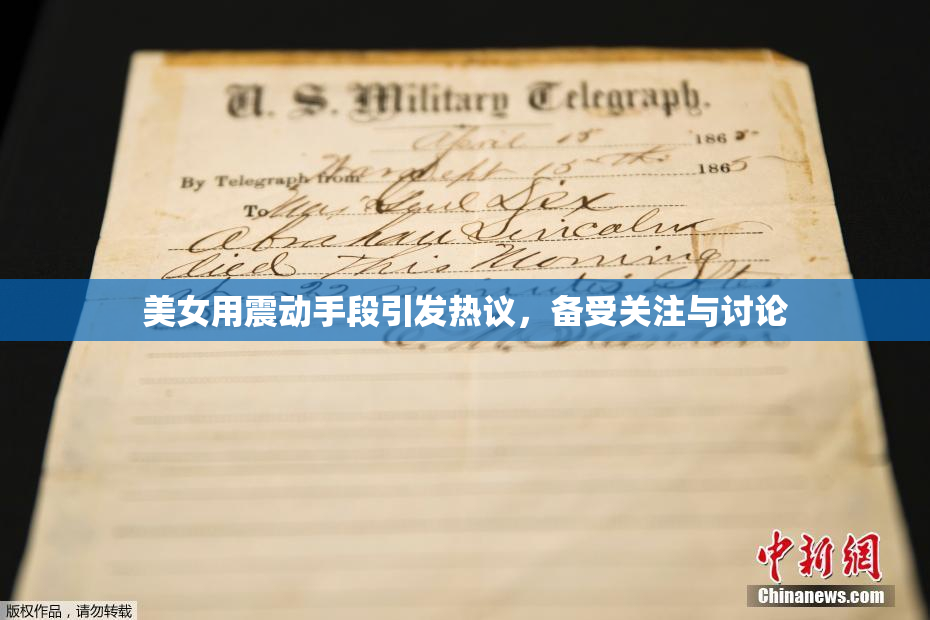 U. S. Military Telegraph.
April 15 1865
By Telegraph from War Dept 15th 1865
To Maj Genl Dix
Abraham Lincoln
died This Morning
22 minutes after
美女用震动手段引发热议，备受关注与讨论
E. M. Stanton
中新網
Chinanews.com
版权作品，请勿转载